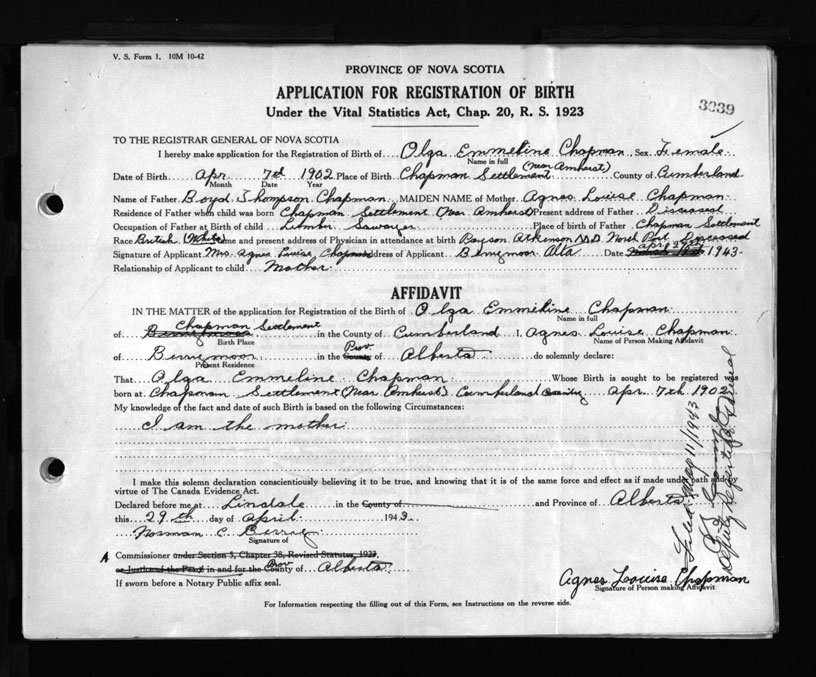 V. S. Form 1. 10M 10-42
PROVINCE OF NOVA SCOTIA
APPLICATION FOR REGISTRATION OF BIRTH
Under the Vital Statistics Act, Chap. 20, R. S. 1923
3939
TO THE REGISTRAR GENERAL OF NOVA SCOTIA
I hereby make application for the Registration of Birth of Olga Emmeline Chapman Sex Female
Name in full
(Near Amherst)
Date of Birth Apr 7th 1902 Place of Birth Chapman Settlement County of Cumberland
Month Date Year
Name of Father Boyd Thompson Chapman MAIDEN NAME of Mother Agnes Louise Chapman
Residence of Father when child was born Chapman Settlement (Near Amherst) Present address of Father Diseased
Occupation of Father at Birth of child Lumber Sawyer Place of birth of Father Chapman Settlement
Race British (White) Name and present address of Physician in attendance at birth Payson Atkenson M.D. North Port Diseased
Signature of Applicant Mrs. Agnes Louise Chapman Address of Applicant Berrymoor Alta Date April 29th 1943
Relationship of Applicant to child Mother
AFFIDAVIT
IN THE MATTER of the application for Registration of the Birth of Olga Emmeline Chapman
Name in full
Chapman Settlement
of Berrymoor in the County of Cumberland I, Agnes Louise Chapman
Birth Place Name of Person Making Affidavit
Prov.
of Berrymoor in the County of Alberta do solemnly declare:
Present Residence
That Olga Emmeline Chapman Whose Birth is sought to be registered was
born at Chapman Settlement (Near Amherst) Cumberland County Apr. 7th 1902
My knowledge of the fact and date of such Birth is based on the following Circumstances:
I am the mother
I make this solemn declaration conscientiously believing it to be true, and knowing that it is of the same force and effect as if made under oath and by
virtue of The Canada Evidence Act.
Declared before me at Lindale in the County of and Province of Alberta
this 29th day of April 1943
Norman C. Berry
Signature of
A Commissioner under Section 5, Chapter 38, Revised Statutes, 1923,
Prov
or Justice of the Peace in and for the County of Alberta
If sworn before a Notary Public affix seal.
Agnes Louise Chapman
Signature of Person making Affidavit
For Information respecting the filling out of this Form, see Instructions on the reverse side.
Filed May 11/1943
Deputy Registrar General